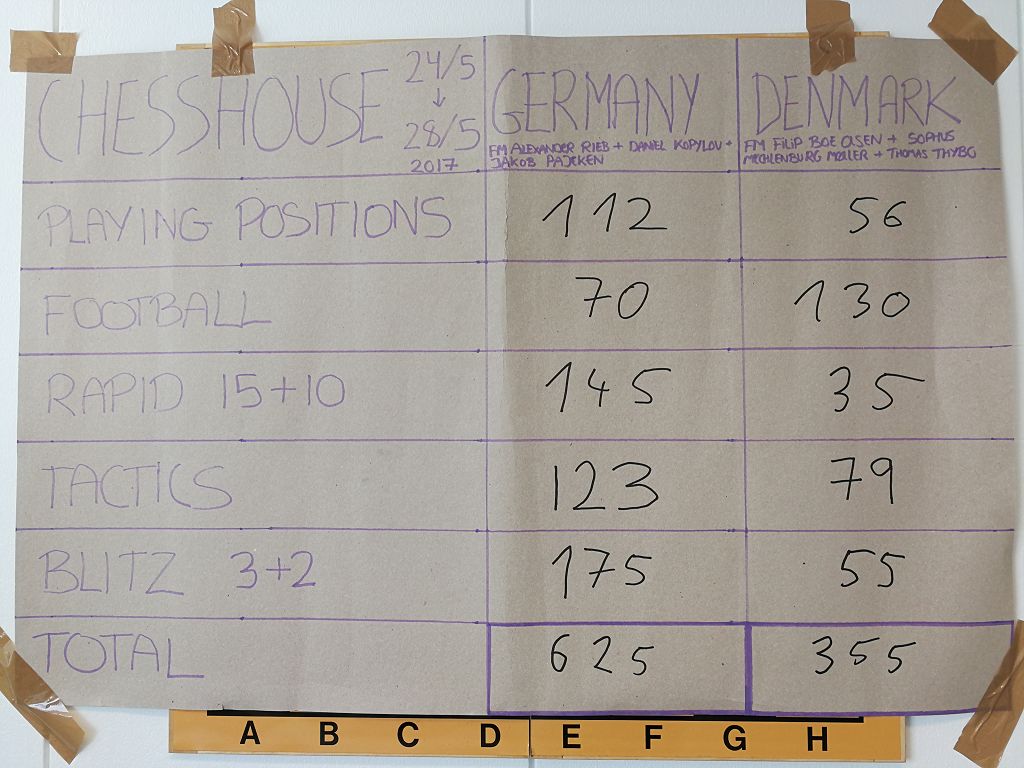 CHESSHOUSE 24/5 ↓ 28/5 2017
GERMANY
FM ALEXANDER RIEB + DANIEL KOPYLOV +
JAKOB PAJEKEN
DENMARK
FM FILIP BOE OLSEN + SOPHUS
MECHLENBURG MØLLER + THOMAS THYBO
PLAYING POSITIONS 112 56
FOOTBALL 70 130
RAPID 15+10 145 35
TACTICS 123 79
BLITZ 3+2 175 55
TOTAL 625 355
A B C D E F G H